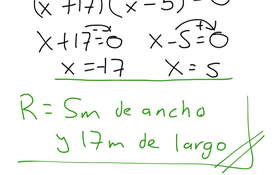 (x+17)(x-5)=0
x+17=0 x-5=0
x=-17 x=5
R= 5m de ancho
y 17m de largo